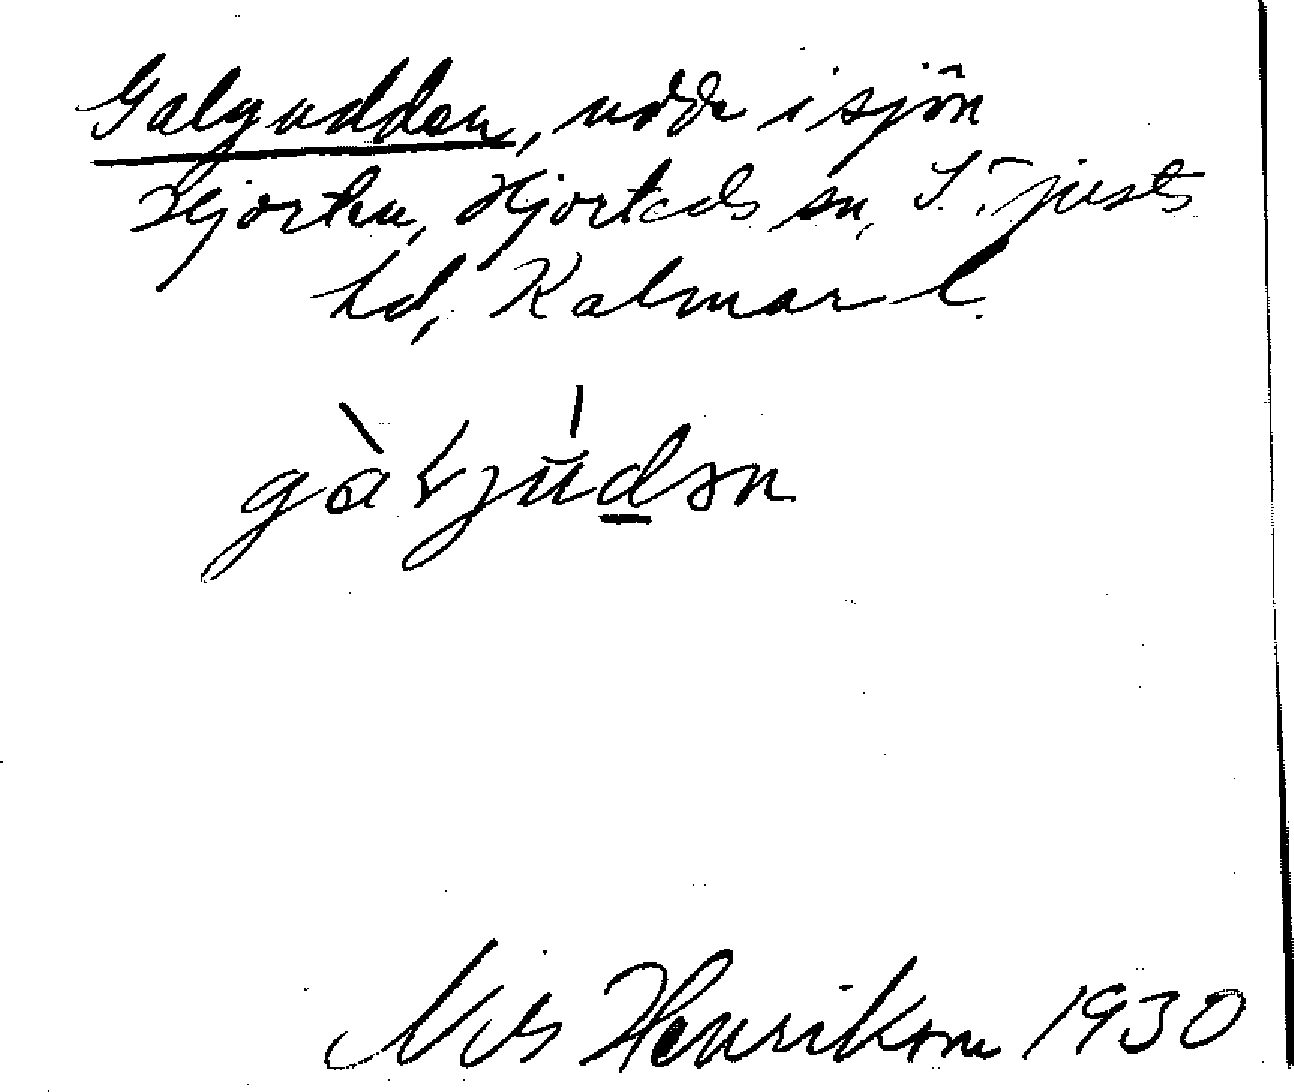 Galgudden, udde i sjön
Hjorten, Hjorteds sn, S. Tjusts
hd, Kalmar l.
gàɽjùdən
Nils Henrikson 1930